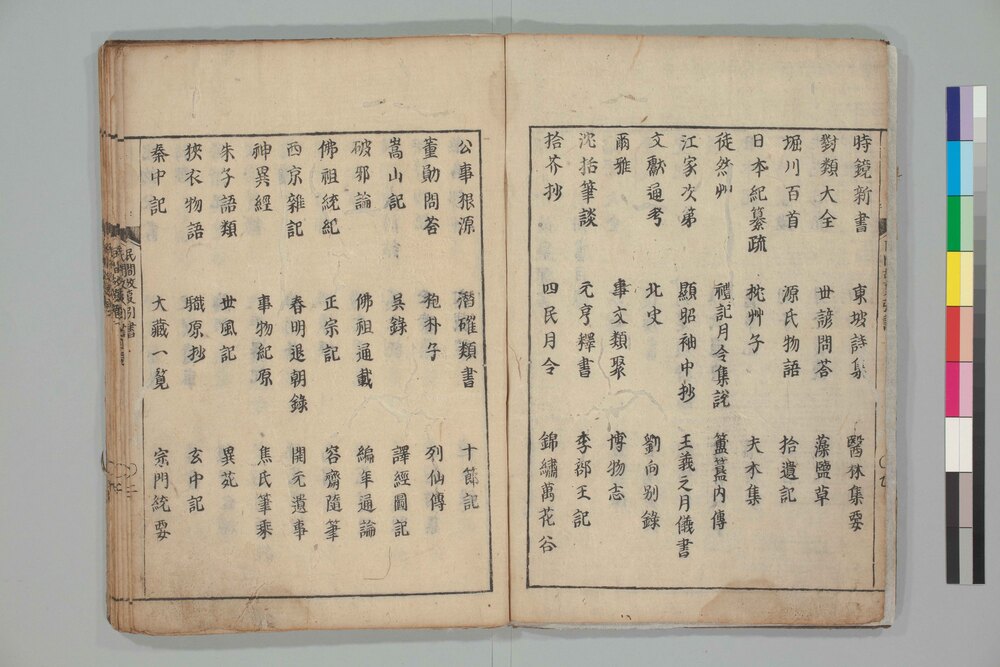 時鏡新書 東坡詩集 醫林集要
對類大全 世諺問荅 藻鹽草
堀川百首 源氏物語 拾遺記
日本紀纂疏 枕艸子 夫木集
徒然艸 禮記月令集說 簠簋内傳
江家次第 顯昭袖中抄 王羲之月儀書
文獻通考 北史 劉向別錄
爾雅 事文類聚 博物志
沈括筆談 元亨釋書 李郡王記
拾芥抄 四民月令 錦繡萬花谷
公事根源 潛確類書 十節記
董勛問荅 抱朴子 列仙傳
嵩山記 吳錄 譯經圖記
破邪論 佛祖通載 編年通論
佛祖統紀 正宗記 容齋隨筆
西京雜記 春明退朝錄 開元遺事
神異經 事物紀原 焦氏筆乘
朱子語類 世風記 異苑
狹衣物語 職原抄 玄中記
秦中記 大藏一覽 宗門統要
民間故夏引書